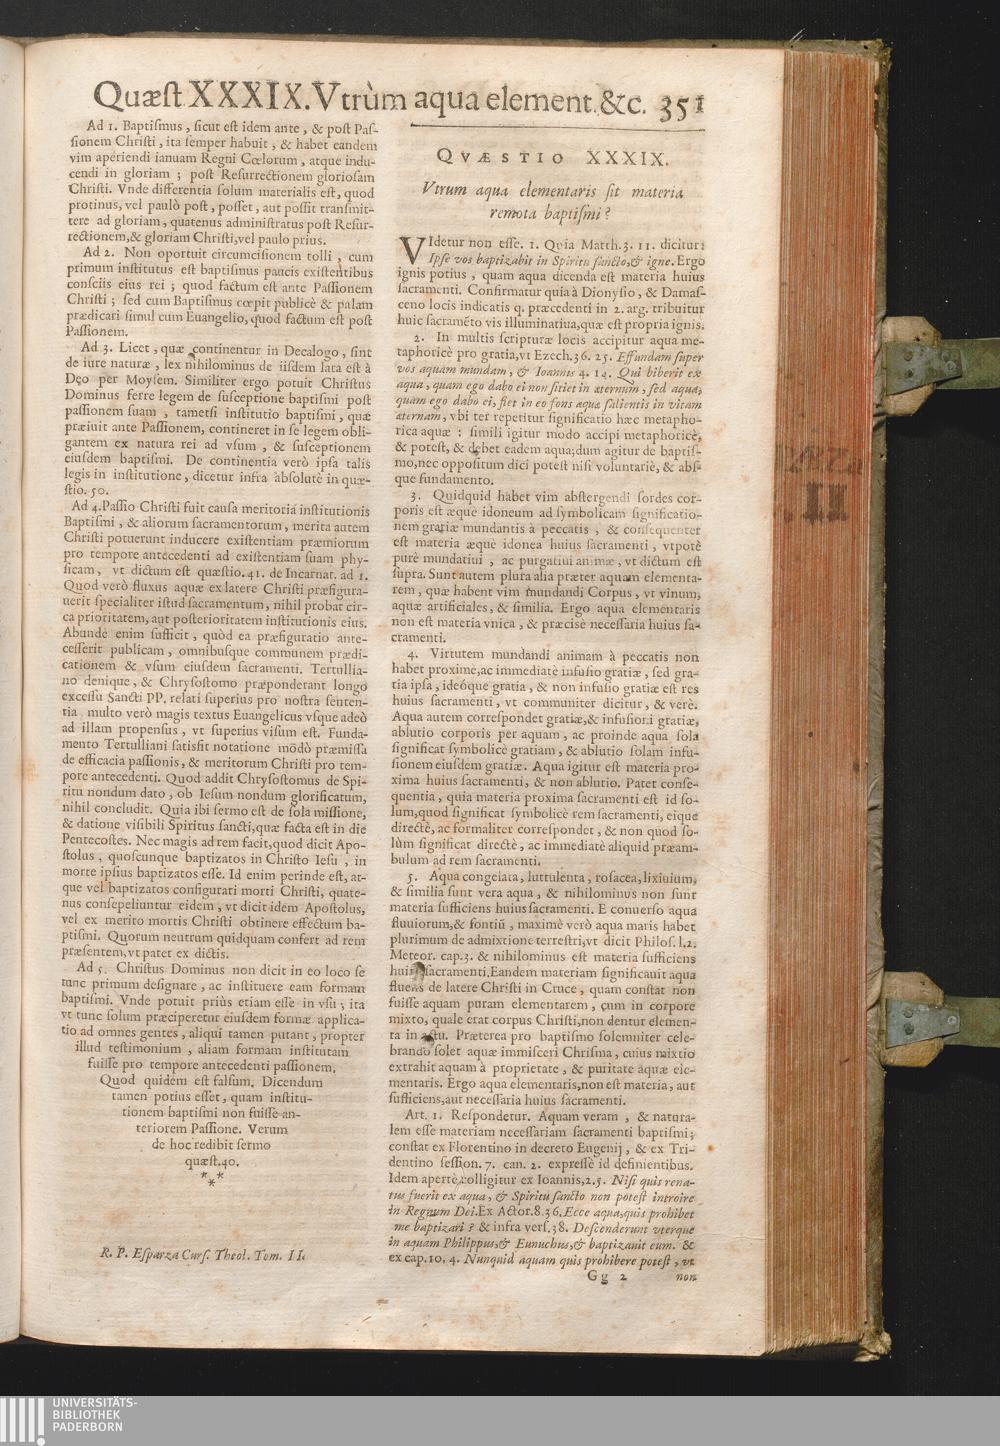 Quæſt XXXIX. Vtrùm aqua element. &c. 351
Ad 1. Baptiſmus, ſicut eſt idem ante, & poſt Paſ-
ſionem Chriſti, ita ſemper habuit, & habet eandem
vim aperiendi ianuam Regni Cœlorum, atque indu-
cendi in gloriam; poſt Reſurrectionem glorioſam
Chriſti. Vnde differentia ſolum materialis eſt, quod
protinus, vel paulò poſt, poſſet, aut poſſit tranſmit-
tere ad gloriam, quatenus adminiſtratus poſt Reſur-
rectionem,& gloriam Chriſti,vel paulo prius.
Ad 2. Non oportuit circumciſionem tolli, cum
primum inſtitutus eſt baptiſmus paucis exiſtentibus
conſciis eius rei; quod factum eſt ante Paſſionem
Chriſti; ſed cum Baptiſmus cœpit publicè & palam
prædicari ſimul cum Euangelio, quod factum eſt poſt
Paſſionem.
Ad 3. Licet, quæ continentur in Decalogo, ſint
de iure naturæ, lex nihilominus de iiſdem lata eſt à
Deo per Moyſem. Similiter ergo potuit Chriſtus
Dominus ferre legem de ſuſceptione baptiſmi poſt
paſſionem ſuam, tametſi inſtitutio baptiſmi, quæ
præiuit ante Paſſionem, contineret in ſe legem obli-
gantem ex natura rei ad vſum, & ſuſceptionem
eiuſdem baptiſmi. De continentia verò ipſa talis
legis in inſtitutione, dicetur infra abſolutè in quæ-
ſtio. 50.
Ad 4.Paſſio Chriſti fuit cauſa meritoria inſtitutionis
Baptiſmi, & aliorum ſacramentorum, merita autem
Chriſti potuerunt inducere exiſtentiam præmiorum
pro tempore antecedenti ad exiſtentiam ſuam phy-
ſicam, vt dictum eſt quæſtio.41. de Incarnat. ad 1.
Quod verò fluxus aquæ ex latere Chriſti præfigura-
uerit ſpecialiter iſtud ſacramentum, nihil probat cir-
ca prioritatem, aut poſterioritatem inſtitutionis eius.
Abundè enim ſufficit, quòd ea præfiguratio ante-
ceſſerit publicam, omnibuſque communem prædi-
cationem & vſum eiuſdem ſacramenti. Tertullia-
no denique, & Chryſoſtomo præponderant longo
exceſſu Sancti PP. relati ſuperius pro noſtra ſenten-
tia multo verò magis textus Euangelicus vſque adeò
ad illam propenſus, vt ſuperius viſum eſt. Funda-
mento Tertulliani ſatisfit notatione mòdò præmiſſa
de efficacia paſſionis, & meritorum Chriſti pro tem-
pore antecedenti. Quod addit Chryſoſtomus de Spi-
ritu nondum dato, ob Ieſum nondum glorificatum,
nihil concludit. Quia ibi ſermo eſt de ſola miſſione,
& datione viſibili Spiritus ſancti,quæ facta eſt in die
Pentecoſtes. Nec magis ad rem facit,quod dicit Apo-
ſtolus, quoſcunque baptizatos in Chriſto Ieſu, in
morte ipſius baptizatos eſſe. Id enim perinde eſt, at-
que vel baptizatos configurati morti Chriſti, quate-
nus conſepeliuntur eidem, vt dicit idem Apoſtolus,
vel ex merito mortis Chriſti obtinere effectum ba-
ptiſmi. Quorum neutrum quidquam confert ad rem
præſentem,vt patet ex dictis.
Ad 5. Chriſtus Dominus non dicit in eo loco ſe
tunc primum deſignare, ac inſtituere eam formam
baptiſmi. Vnde potuit priùs etiam eſſe in vſu; ita
vt tunc ſolum præciperetur eiuſdem formæ applica-
tio ad omnes gentes, aliqui tamen putant, propter
illud teſtimonium, aliam formam inſtitutam
fuiſſe pro tempore antecedenti paſſionem.
Quod quidem eſt falſum. Dicendum
tamen potius eſſet, quam inſtitu-
tionem baptiſmi non fuiſſe an-
teriorem Paſſione. Verum
de hoc redibit ſermo
quæſt.40.
***
R. P. Eſparza Curſ. Theol. Tom. II.
QVÆSTIO XXXIX.
Vtrum aqua elementaris ſit materia
remota baptiſmi?
VIdetur non eſſe. 1. Quia Matth.3. 11. dicitur:
Ipſe vos baptizabit in Spiritu ſancto,& igne. Ergo
ignis potius, quam aqua dicenda eſt materia huius
ſacramenti. Confirmatur quia à Dionyſio, & Damaſ-
ceno locis indicatis q. præcedenti in 2. arg. tribuitur
huic ſacramẽto vis illuminatiua,quæ eſt propria ignis.
2. In multis ſcripturæ locis accipitur aqua me-
taphoricè pro gratia,vt Ezech.36. 25. Effundam ſuper
vos aquam mundam, & Ioannis 4. 14. Qui biberit ex
aqua, quam ego dabo ei non ſitiet in æternum, ſed aqua,
quam ego dabo ei, fiet in eo fons aquæ ſalientis in vitam
æternam, vbi ter repetitur ſignificatio hæc metapho-
rica aquæ: ſimili igitur modo accipi metaphoricè,
& poteſt, & debet eadem aqua;dum agitur de baptiſ-
mo,nec oppoſitum dici poteſt niſi voluntariè, & abſ-
que fundamento.
3. Quidquid habet vim abſtergendi ſordes cor-
poris eſt æque idoneum ad ſymbolicam ſignificatio-
nem gratiæ mundantis à peccatis, & conſequenter
eſt materia æquè idonea huius ſacramenti, vtpotè
purè mundatiui, ac purgatiui animæ, vt dictum eſt
ſupra. Sunt autem plura alia præter aquam elementa-
rem, quæ habent vim mundandi Corpus, vt vinum,
aquæ artificiales, & ſimilia. Ergo aqua elementaris
non eſt materia vnica, & præciſè neceſſaria huius ſa-
cramenti.
4. Virtutem mundandi animam à peccatis non
habet proxime,ac immediatè infuſio gratiæ, ſed gra-
tia ipſa, ideóque gratia, & non infuſio gratiæ eſt res
huius ſacramenti, vt communiter dicitur, & verè.
Aqua autem correſpondet gratiæ,& infuſioni gratiæ,
ablutio corporis per aquam, ac proinde aqua ſola
ſignificat ſymbolicè gratiam, & ablutio ſolam infu-
ſionem eiuſdem gratiæ. Aqua igitur eſt materia pro-
xima huius ſacramenti, & non ablutio. Patet conſe-
quentia, quia materia proxima ſacramenti eſt id ſo-
lum,quod ſignificat ſymbolicè rem ſacramenti, eique
directè, ac formaliter correſpondet, & non quod ſo-
lùm ſignificat directè, ac immediatè aliquid præam-
bulum ad rem ſacramenti.
5. Aqua congelata, luttulenta, roſacea, lixiuium,
& ſimilia ſunt vera aqua, & nihilominus non ſunt
materia ſufficiens huius ſacramenti. E conuerſo aqua
fluuiorum,& fontiũ, maximè verò aqua maris habet
plurimum de admixtione terreſtri,vt dicit Philoſ.l.2.
Meteor. cap.3. & nihilominus eſt materia ſufficiens
huius ſacramenti.Eandem materiam ſignificauit aqua
fluens de latere Chriſti in Cruce, quam conſtat non
fuiſſe aquam puram elementarem, cum in corpore
mixto, quale erat corpus Chriſti,non dentur elemen-
ta in actu. Præterea pro baptiſmo ſolemniter cele-
brando ſolet aquæ immiſceri Chriſma, cuius mixtio
extrahit aquam à proprietate, & puritate aquæ ele-
mentaris. Ergo aqua elementaris,non eſt materia, aut
ſufficiens,aut neceſſaria huius ſacramenti.
Art. 1. Reſpondetur. Aquam veram, & natura-
lem eſſe materiam neceſſariam ſacramenti baptiſmi;
conſtat ex Florentino in decreto Eugenij, & ex Tri-
dentino ſeſſion. 7. can. 2. expreſſè id definientibus.
Idem apertè,colligitur ex Ioannis,2.5. Niſi quis rena-
tus fuerit ex aqua, & Spiritu ſancto non poteſt introire
in Regnum Dei.Ex Actor.8.36.Ecce aqua,quis prohibet
me baptizari? & infra verſ.38. Deſcenderunt vterque
in aquam Philippus,& Eunuchus,& baptizauit eum. &
ex cap.10. 4. Nunquid aquam quis prohibere poteſt, vt
Gg 2 non
UNIVERSITÄTS-
BIBLIOTHEK
PADERBORN